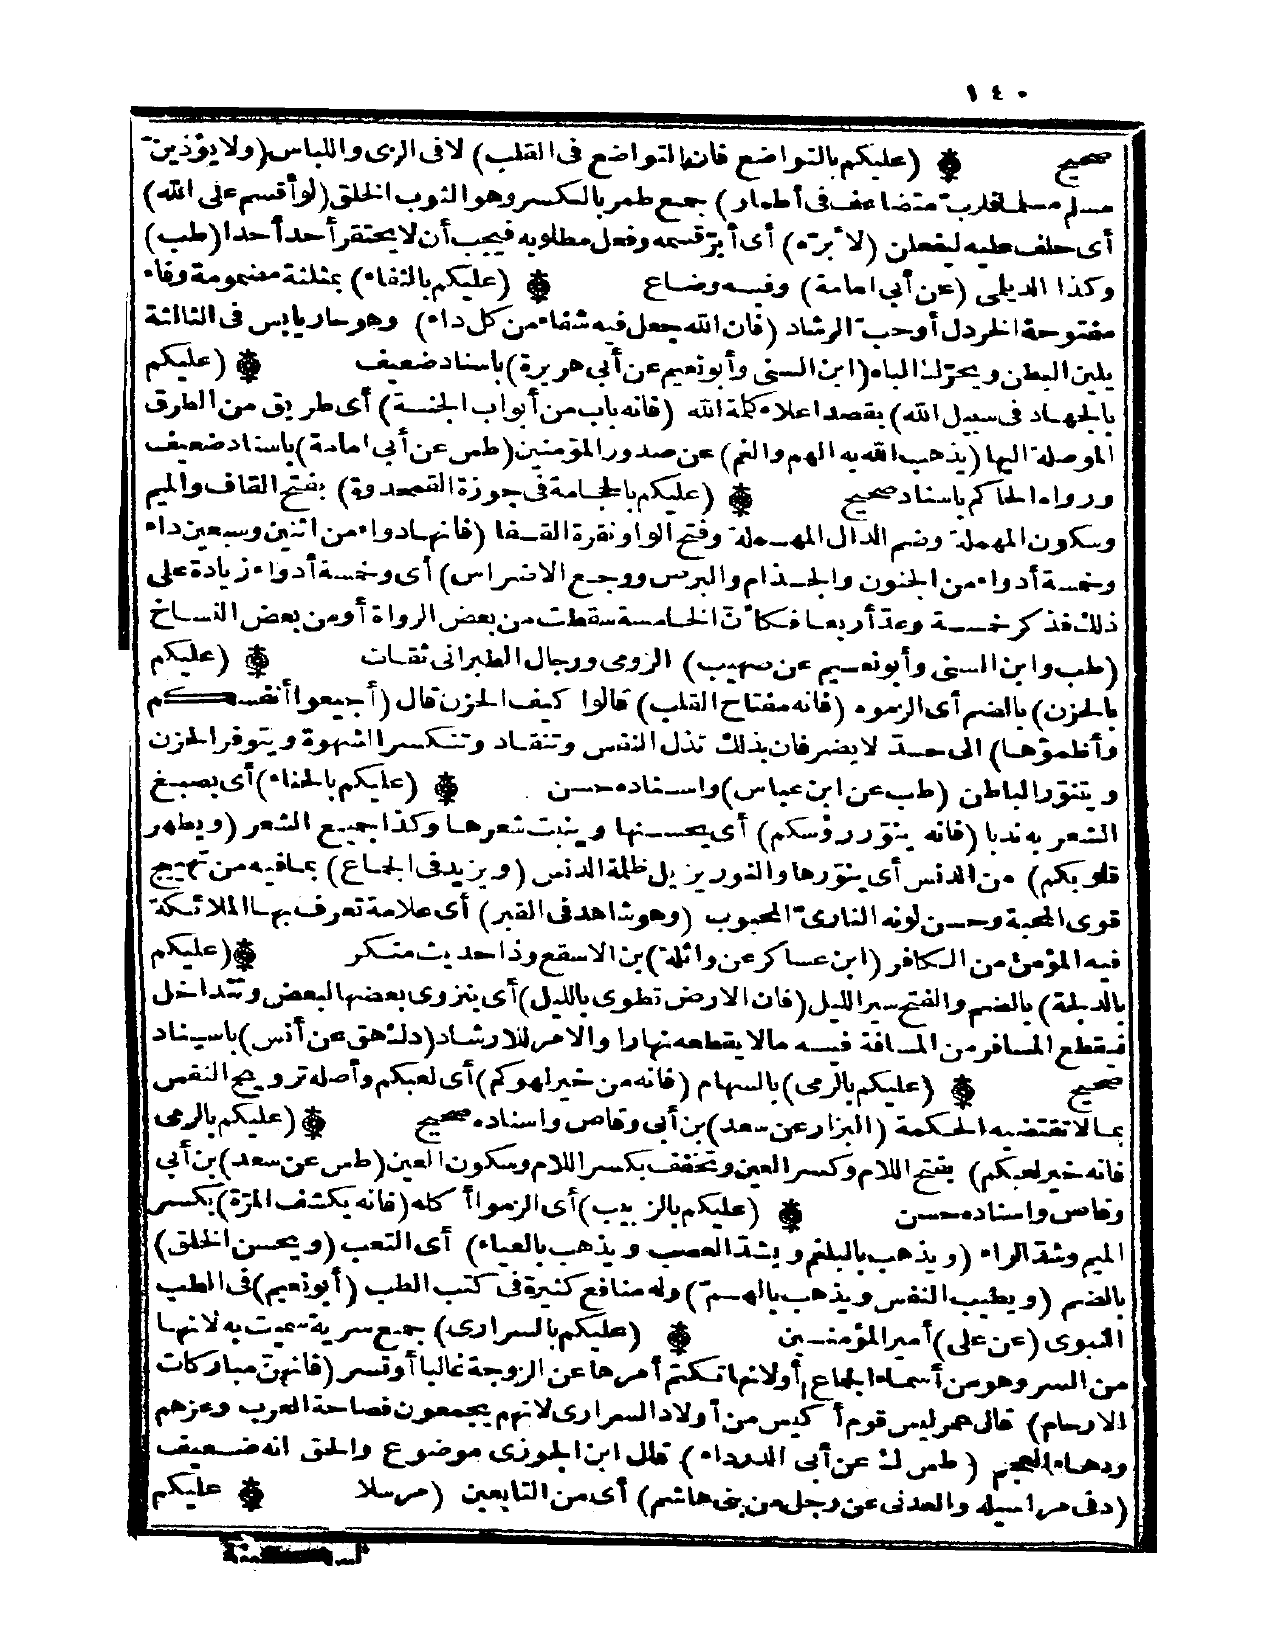 ١٤٠
صحيح (عليكم بالتواضع فان التواضع فى القلب) لا فى الزى واللباس (ولا يؤذين
مسلم مسلما فلرب متضاعف فى أطمار) جمع طمر بالكسر وهو الثوب الخلق (لو أقسم على الله)
أى حلف عليه ليفعلن (لأبره) أى أبر قسمه وفعل مطلوبه فيجب أن لا يحتقر أحد أحدا (طب)
وكذا الديلمى (عن أبى امامة) وفيه وضاع (عليكم بالثفاء) بمثلثة مضمومة وفاء
مفتوحة الخردل أو حب الرشاد (فان الله جعل فيه شفاء من كل داء) وهو حار يابس فى الثالثة
يلين البطن ويحرك الباه (ابن السنى وأبو نعيم عن أبى هريرة) باسناد ضعيف (عليكم
بالجهاد فى سبيل الله) بقصد اعلاء كلمة الله (فانه باب من أبواب الجنة) أى طريق من الطرق
الموصلة اليها (يذهب الله به الهم والغم) عن صدور المؤمنين (طس عن أبى امامة) باسناد ضعيف
ورواه الحاكم باسناد صحيح (عليكم بالحجامة فى جوزة القمحدوة) بفتح القاف والميم
وسكون المهملة وضم الدال المهملة وفتح الواو نقرة القفا (فانها دواء من اثنين وسبعين داء
وخمسة أدواء من الجنون والجذام والبرص ووجع الاضراس) أى وخمسة أدواء زيادة على
ذلك فذكر خمسة وعد أربعا فكأن الخامسة سقطت من بعض الرواة أو من بعض النساخ
(طب وابن السنى وأبو نعيم عن صهيب) الرومى ورجال الطبرانى ثقات (عليكم
بالحزن) بالضم أى الزموه (فانه مفتاح القلب) قالوا كيف الحزن قال (أجيعوا أنفسكم
وأظمؤها) الى حد لا يضر فان بذلك تذل النفس وتنقاد وتنكسر الشهوة ويتوفر الحزن
ويتنور الباطن (طب عن ابن عباس) واسناده حسن (عليكم بالحناء) أى بصبغ
الشعر به ندبا (فانه ينور رؤسكم) أى يحسنها وينبت شعرها وكذا جميع الشعر (ويطهر
قلوبكم) من الدنس أى ينورها والنور يزيل ظلمة الدنس (ويزيد فى الجماع) بما فيه من تهييج
قوى المحبة وحسن لونه النارى المحبوب (وهو شاهد فى القبر) أى علامة تعرف بها الملائكة
فيه المؤمن من الكافر (ابن عساكر عن واثلة) بن الاسقع وذا حديث منكر (عليكم
بالدلجة) بالضم والفتح سير الليل (فان الارض تطوى بالليل) أى ينزوى بعضها لبعض وتتداخل
فيقطع المسافر من المسافة فيه ما لا يقطعه نهارا والامر للارشاد (دك هق عن أنس) باسيناد
صحيح (عليكم بالرمى) بالسهام (فانه من خير لهوكم) أى لعبكم وأصله ترويح النفس
بما لا تقتضيه الحكمة (البزار عن سعد) بن أبى وقاص واسناده صحيح (عليكم بالرمى
فانه خير لعبكم) بفتح اللام وكسر العين وتخفف بكسر اللام وسكون العين (طس عن سعد) بن أبى
وقاص واسناده حسن (عليكم بالزبيب) أى الزموا أكله (فانه يكشف المرة) بكسر
الميم وشد الراء (ويذهب بالبلغم ويشد العصب ويذهب بالعياء) أى التعب (ويحسن الخلق)
بالضم (ويطيب النفس ويذهب بالهم) وله منافع كثيرة فى كتب الطب (أبو نعيم) فى الطب
النبوى (عن على) أمير المؤمنين (عليكم بالسرارى) جمع سرية سميت به لانها
من السر وهو من أسماء الجماع أو لانها تكتم أمرها عن الزوجة غالبا أو تسر (فانهن مباركات
الارحام) قال عمر ليس قوم أكيس من أولاد السرارى لانهم يجمعون فصاحة العرب وعزهم
ودهاء العجم (طس ك عن أبى الدرداء) قال ابن الجوزى موضوع والحق انه ضعيف
(د فى مراسيله والعدنى عن رجل من بنى هاشم) أى من التابعين (مرسلا عليكم